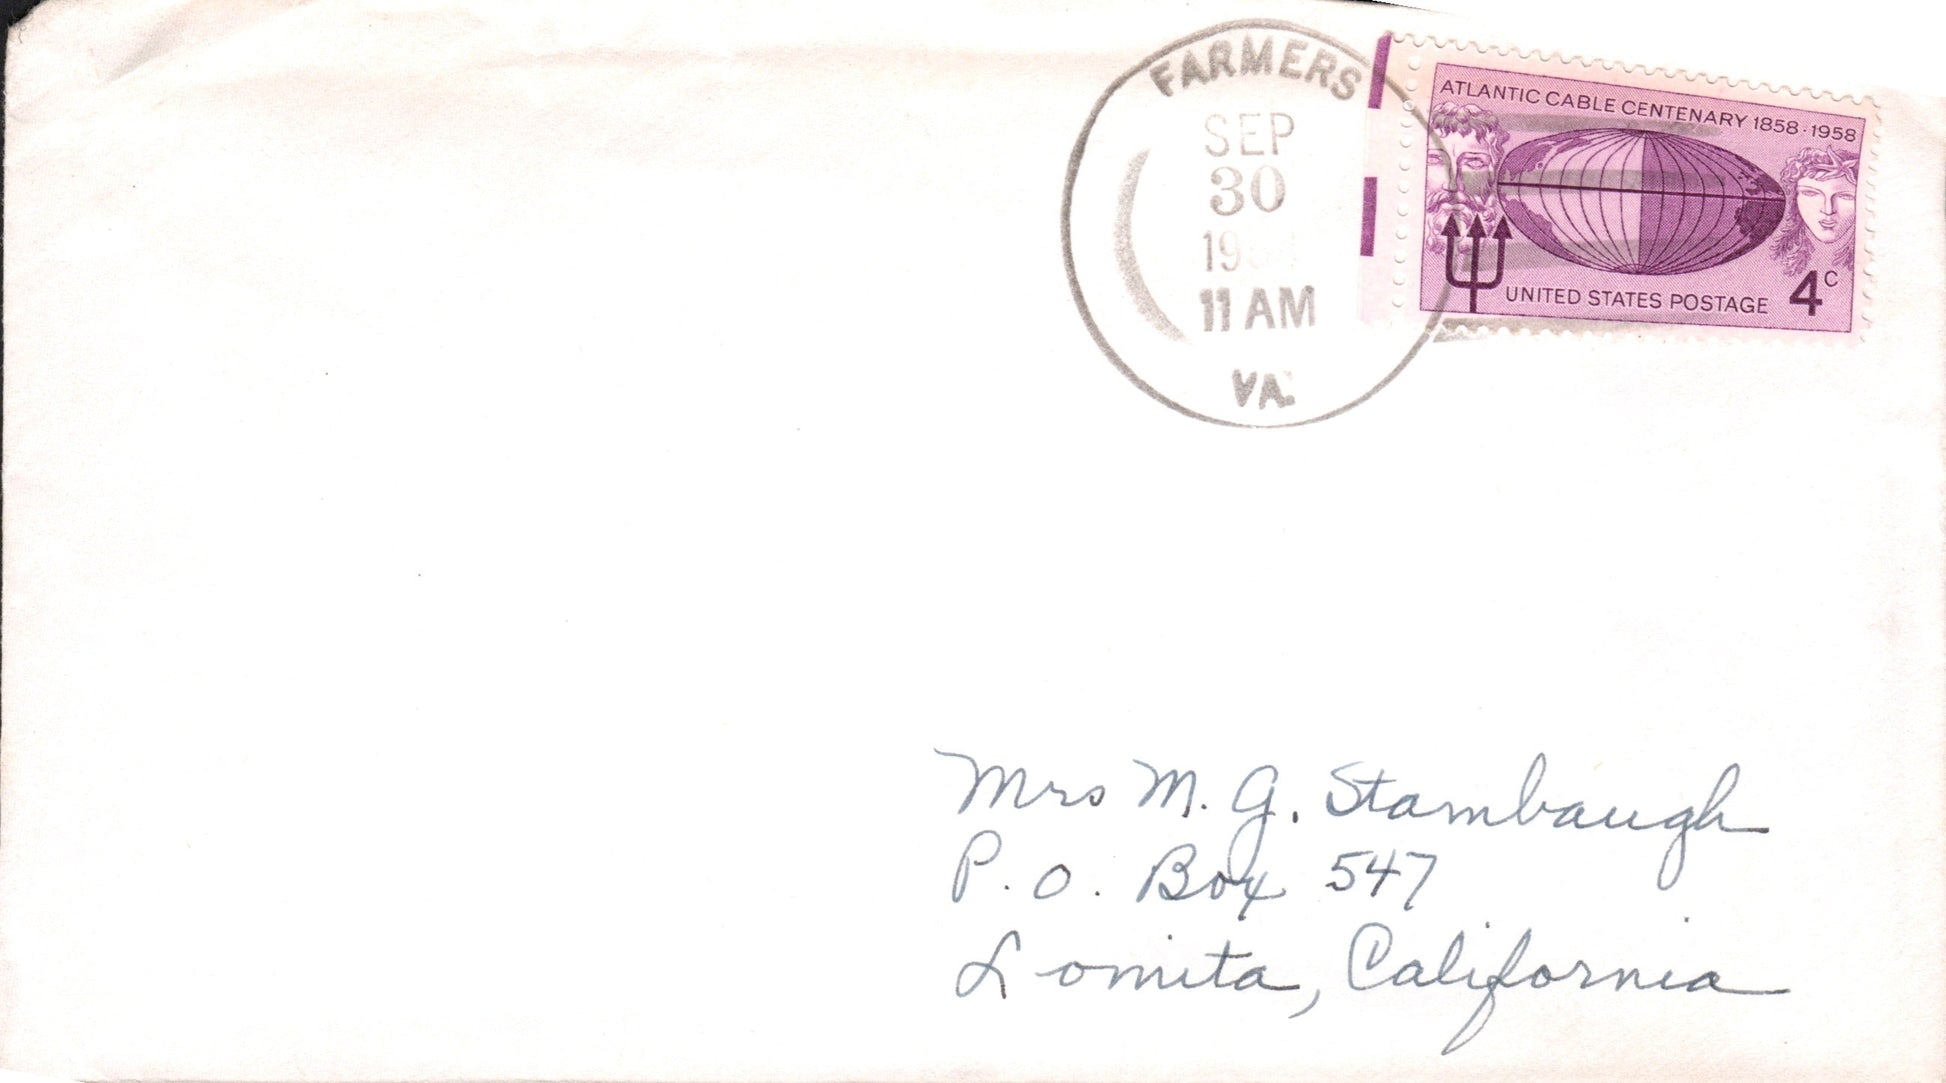 FARMERS
SEP
30
11 AM
VA.
ATLANTIC CABLE CENTENARY 1858·1958
UNITED STATES POSTAGE 4c
Mrs M. G. Stambaugh
P. O. Box 547
Lomita, California